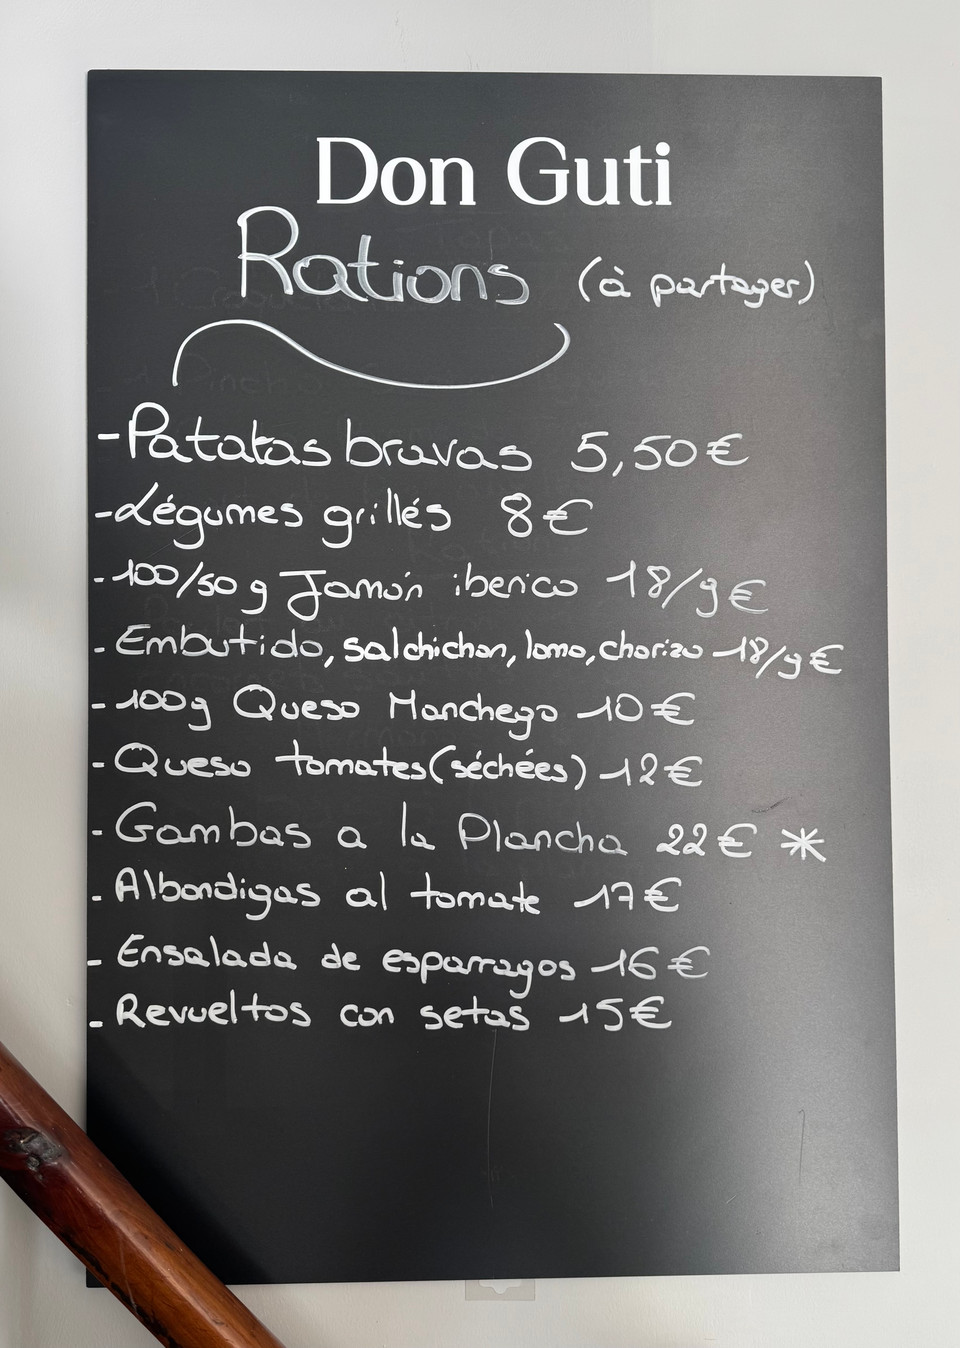 Don Guti
Rations (à partager)
-Patatas bravas 5,50€
-Légumes grillés 8€
-100/50g Jamón iberico 18/9€
-Embutido, salchichon, lomo, chorizo 18/9€
-100g Queso Manchego 10€
-Queso tomates (séchées) 12€
-Gambas a la Plancha 22€ *
-Albondigas al tomate 17€
-Ensalada de esparragos 16€
-Revueltos con setas 15€